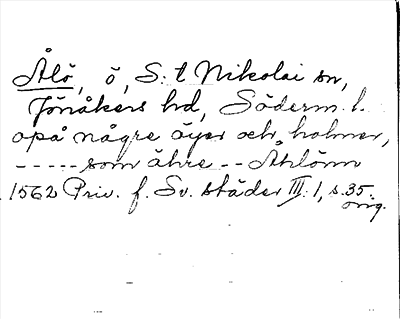 Ålö, ö, S:t Nikolai sn,
Jönåkers hd, Söderm. l.
opå någre öyer och holmer,
----- som ähre -- Åhlönn
1562 Priv. f. Sv. städer III: 1, s. 35.
orig.